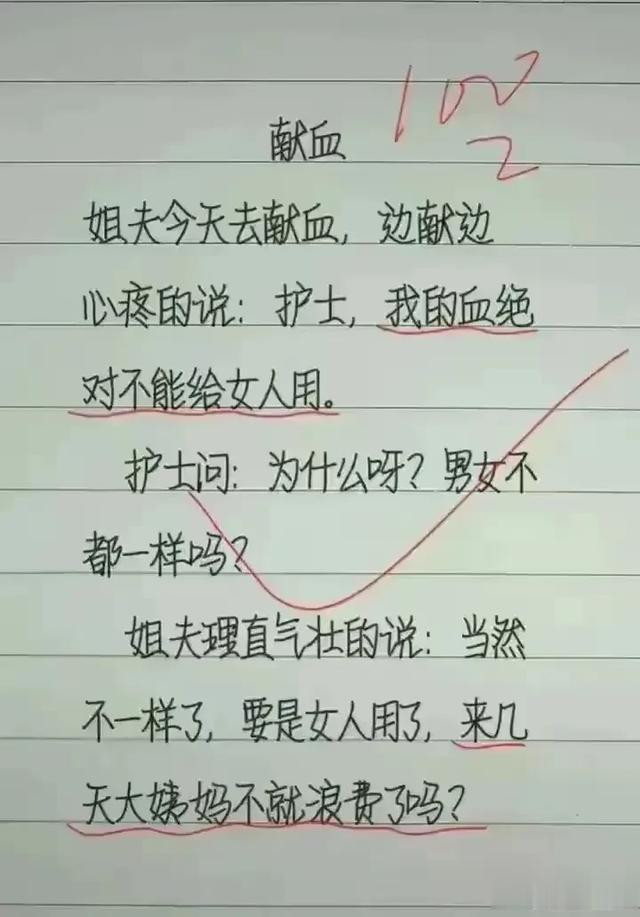 100
2
献血
姐夫今天去献血，边献边
心疼的说：护士，我的血绝
对不能给女人用。
护士问：为什么呀？男女不
都一样吗？
姐夫理直气壮的说：当然
不一样了，要是女人用了，来几
天大姨妈不就浪费了吗？